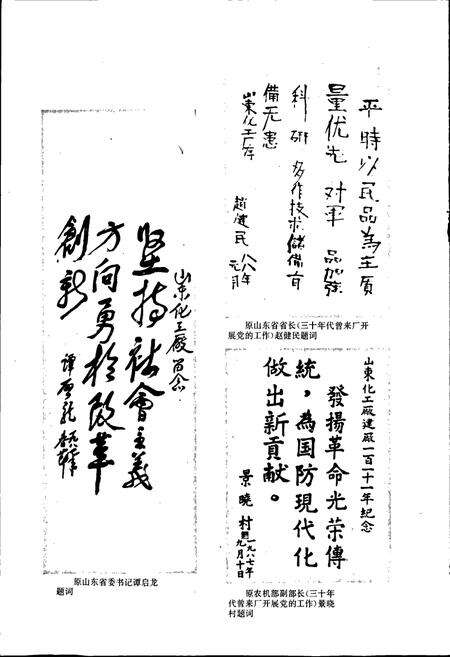 平時以民品為主质
量优先 对军品加强
科研 多作技术儲備有
備无患
山東化工厂存
趙健民 八八年
元月
原山东省省长(三十年代曾来厂开
展党的工作)赵健民题词
山东化工廠留念
坚持社會主義
方向勇於改革
創新
譚啓龍
原山东省委书记谭启龙
题词
山東化工廠建廠一百一十一年紀念
發揚革命光荣傳
統，為国防現代化
做出新貢献。
景曉村
一九八七年
九月十日
原农机部副部长(三十年
代曾来厂开展党的工作)景晓
村题词